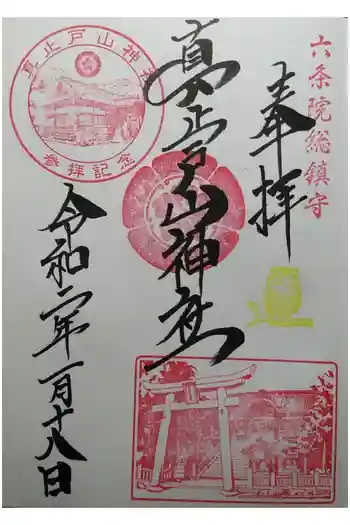 六条院総鎮守
奉拝
真止戸山神社
令和二年一月十八日
真止戸山神社
参拝記念